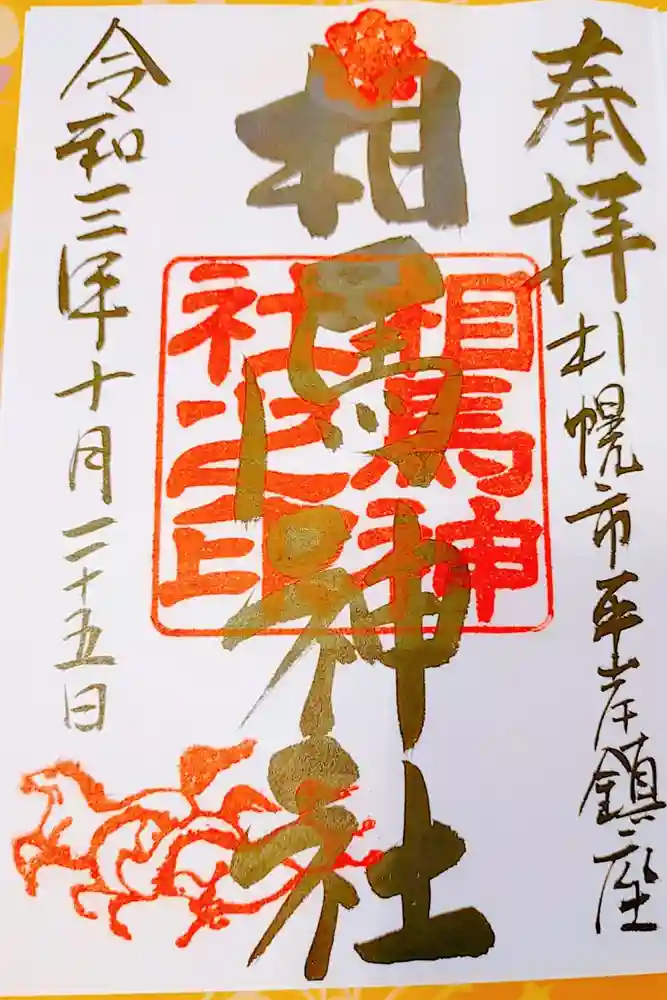 奉拝
札幌市平岸鎮座
相馬神社
相馬神
社之印
令和三年十月二十五日